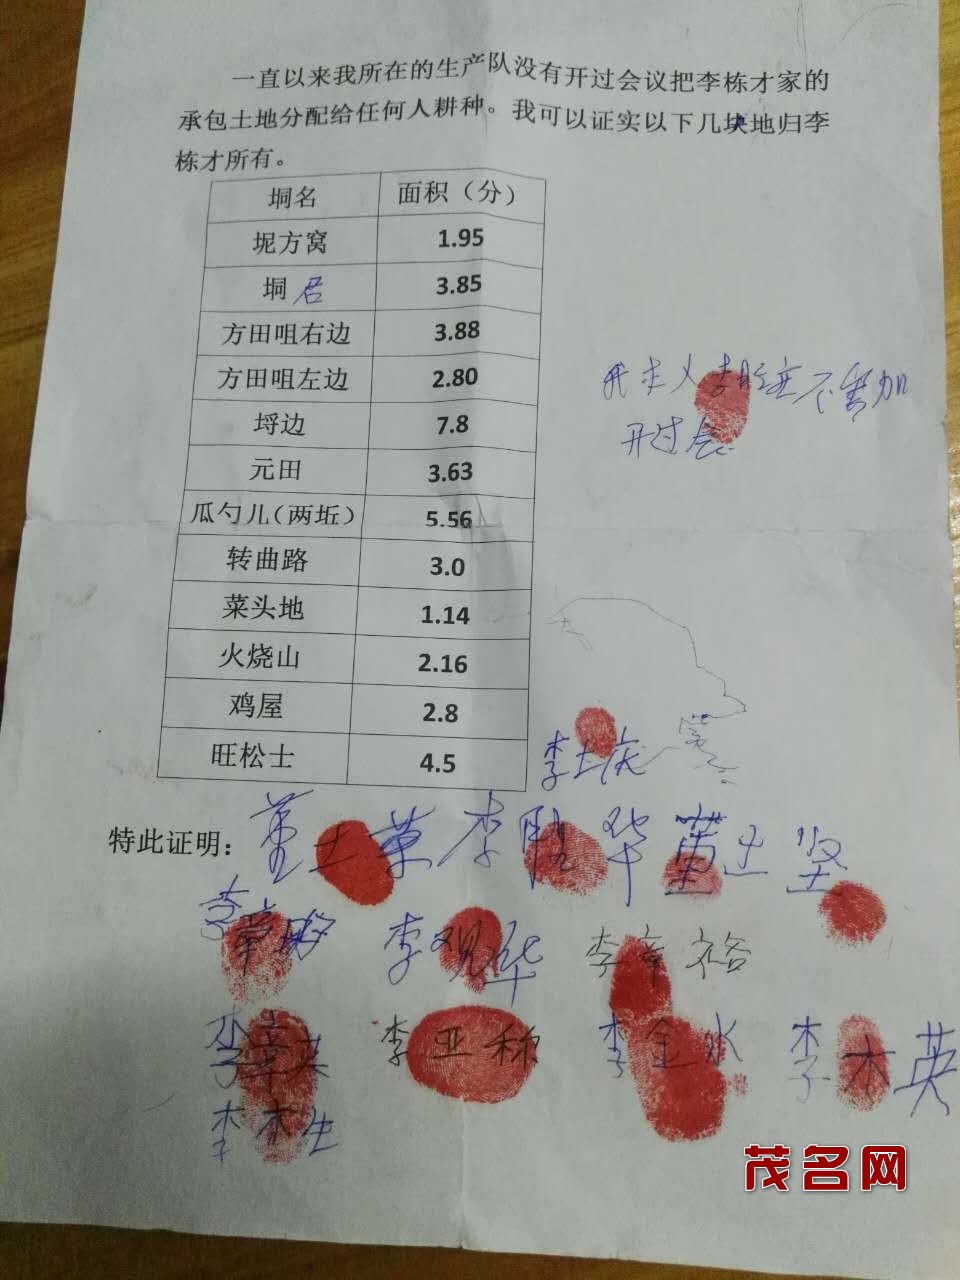 一直以来我所在的生产队没有开过会议把李栋才家的
承包土地分配给任何人耕种。我可以证实以下几块地归李
栋才所有。
垌名 面积（分）
坭方窝 1.95
垌君 3.85
方田咀右边 3.88
方田咀左边 2.80
埒边 7.8
元田 3.63
瓜勺儿（两坵） 5.56
转曲路 3.0
菜头地 1.14
火烧山 2.16
鸡屋 2.8
旺松士 4.5
开过会
李士庆
特此证明：
李观华
李章裕
李亚称
李金水
李木英
李木生
茂名网